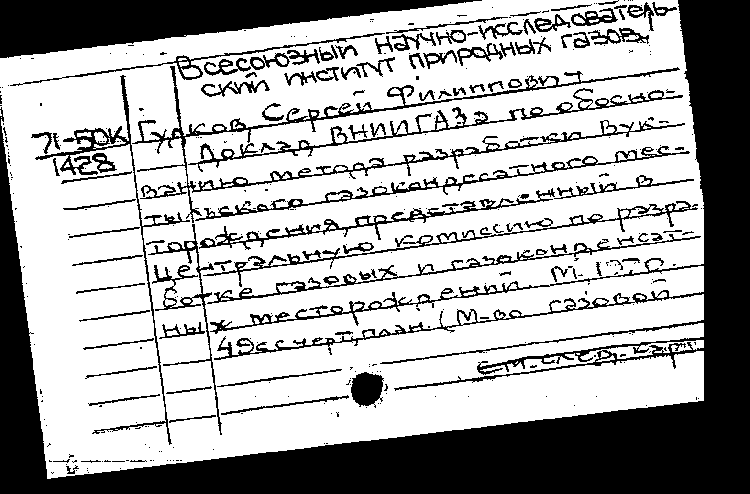 Всесоюзный научно-исследователь-
ский институт природных газов.
71-50К
1428
Гудков, Сергей Филиппович
Доклад ВНИИГАЗа по обосно-
ванию метода разработки Вук-
тыльского газоконденсатного мес-
торождения, представленный в
Центральную комиссию по разра-
ботке газовых и газоконденсат-
ных месторождений. М., 1970.
49с с черт., план. (М-во газовой
см. след. карт